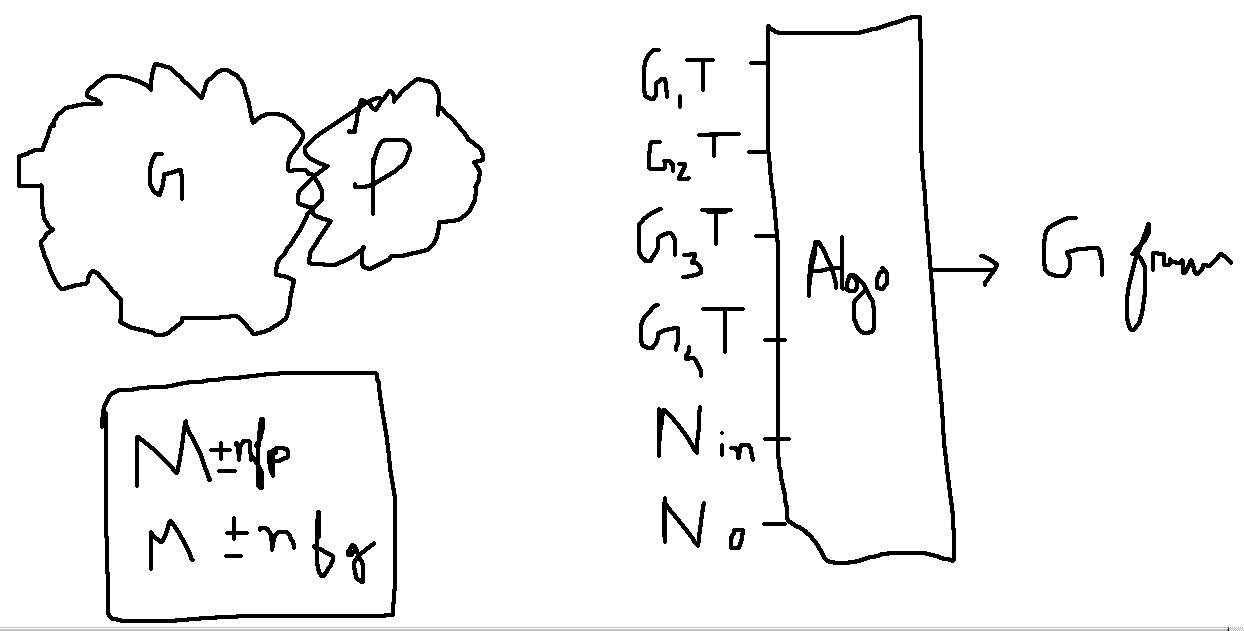 G P
M ± nfp
M ± n fg
G₁T
G₂T
G₃T
G₄T
N in
N o
Algo
G